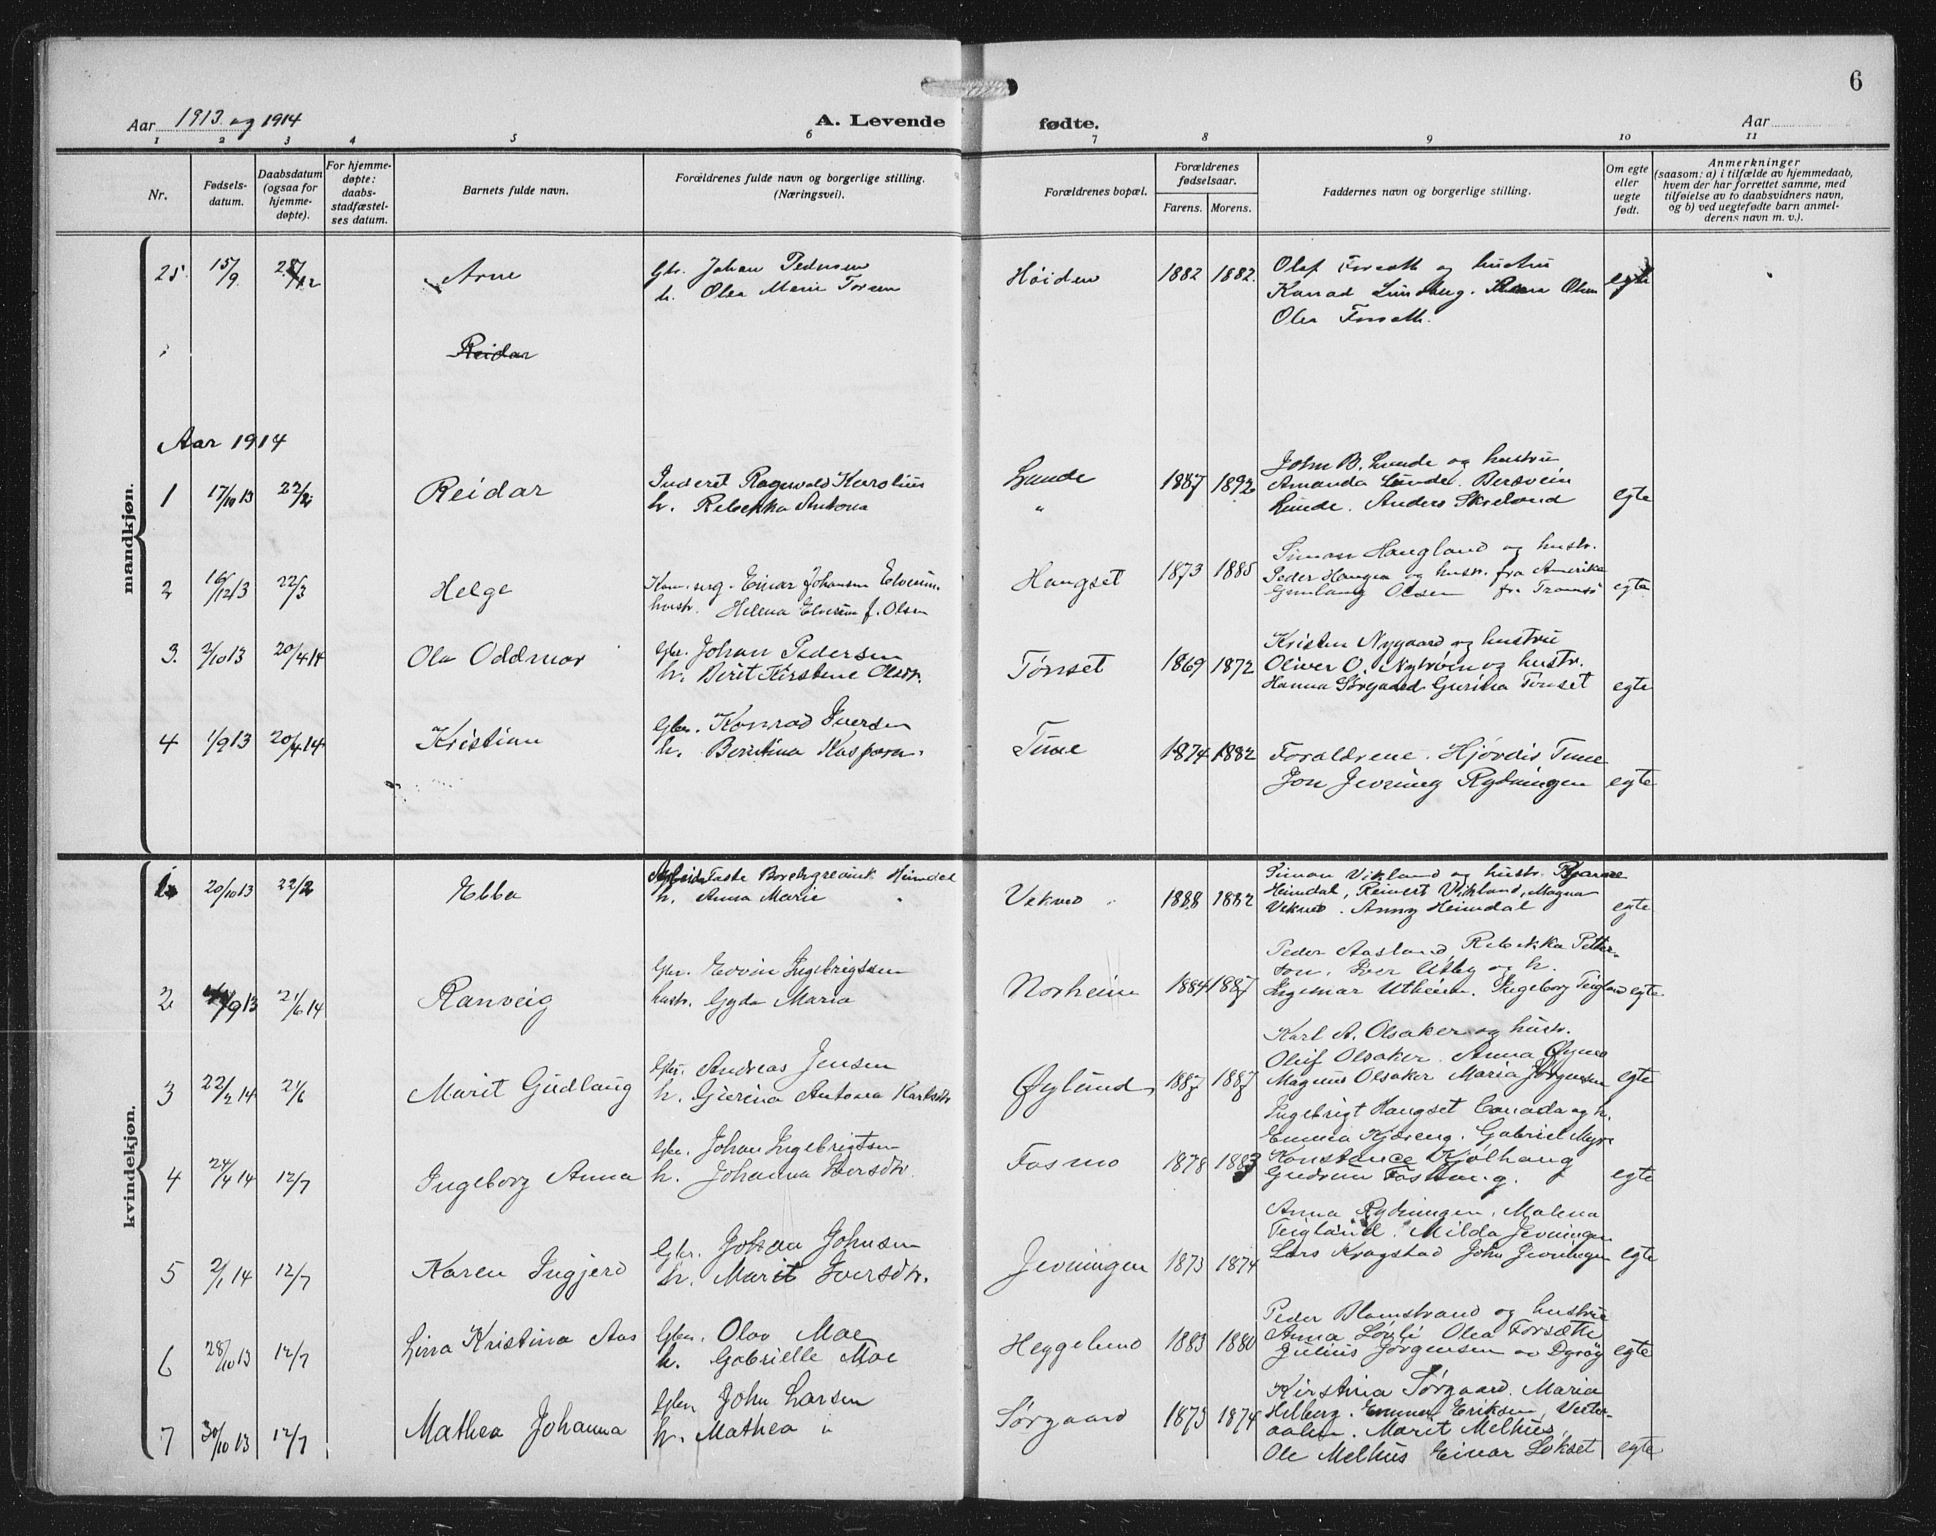 6
Aar 1913 og 1914
A. Levende
fødte.
Aar
1 2 3 4 5 6 7 8 9 10 11
Nr.
Fødsels-
datum.
Daabsdatum
(ogsaa for
hjemme-
døpte).
For hjemme-
døpte:
daabs-
stadfæstel-
ses datum.
Barnets fulde navn.
Forældrenes fulde navn og borgerlige stilling.
(Næringsvei).
Forældrenes bopæl.
Forældrenes
fødselsaar.
Farens. Morens.
Faddernes navn og borgerlige stilling.
Om egte
eller
uegte
født.
Anmerkninger
(saasom: a) i tilfælde av hjemmedaab,
hvem der har forrettet samme, med
tilføielse av to daabsvidners navn,
og b) ved uegtefødte barn anmel-
derens navn m. v.).
mandkjøn.
25. 15/9 28/12 Arne
Gbr. Johan Pedersen
h. Olea Marie
Høiden 1882 1882.
Olaf Forseth og hustru
Konrad Lundberg. Olsen
Olea Forseth.
egte
Reidar
Aar 1914
1 17/10 13 22/2 Reidar
Inderst Ragnvald Karolius
h. Rebekka Antona
Lunde 1887 1892
"
John B. Lunde og hustru
Amanda Lunde. Bergvein
Lunde. Anders Skreland
egte
2 16/12 13 22/3 Helge
Einar Johansen Elverum.
hustr. Helena Elverum f. Olsen
Haugset 1873 1885
Simon Haugland og hustr.
Peder Haugen og hustr. fra Amerika
Gunlaug Olsen fr. Tromsø
egte
3. 2/10 13 20/4 14 Ola Oddmar
Gbr. Johan Pedersen
h. Berit Kirstine Olsdtr.
Tønset 1869 1872
Kristen Nygaard og hustru
Oliver O. Nybrøen og hustr.
Hanna Sørgaard Gurina Tønset
egte
4 1/9 13 20/4 14 Kristian
Gbr. Konrad Iversen
h. Berntina Kaspara.
Fure 1874 1882
Forældrene. Hjørdis
Jon Jevning Rydningen
egte
kvindekjøn.
1 20/10 13 22/2 Ebba
Taste Borchgrevink Heimdal
h. Anna Marie "
Vekmo 1888 1882
Simon Vikland og hustr.
Heimdal, Reinert Vikland, Magna
Vekmo. Anny Heimdal
egte
2 /9 13 21/6 14 Ranveig
Gbr. Edvin Ingebrigtsen
hustr. Gyda Maria
Norheim 1884 1887
Peder Aasland Rebekka Petter-
son, Iver Utby og h.
Ingemar Utheim. Ingeborg Teigland
egte
3 22/2 14 21/6 Marit Gudlaug
Gbr. Andreas Jensen
h. Gurina Antona Karlsdtr
Øylund 1887 1887
Karl A. Olsaker og hustr.
Oluf Olsaker. Anna Øymo
Magnus Olsaker Maria Jørgensen
egte
4 24/4 14 12/7 Ingeborg Anna
Gbr. Johan Ingebrigtsen
h. Johanna Iversdtr.
Fosmo 1878 1883
Ingebrigt Haugset Canada og h.
Emma Kjæreng. Gabriel Myre
Konstance Kjølhaug
Gudrun Fosmo. g.
egte
5 2/1 14 12/7 Karen Ingjerd
Gbr. Johan Johnsen
h. Marit Iversdtr.
Jevningen 1873 1874
Anna Rydningen, Malena
Teigland. Milda Jevningen
Lars Kragstad John Jevningen
egte
6 28/10 13 12/7 Lina Kristina Aas
Gbr. Olav Moe
h. Gabrielle Moe
Heggelund 1883 1880
Peder Blomstrand og hustru
Anna Lørli Olea Forsæth
Julius Jørgensen av Dyrøy
egte
7 30/10 13 12/7 Mathea Johanna
Gbr. John Larsen
h. Mathea "
Sørgaard 1873 1874
Kirstina Sørgaard. Maria
Helberg. Emma Eriksen, Vester-
aalen. Marit Melhus,
Ole Melhus Einar Lokset
egte